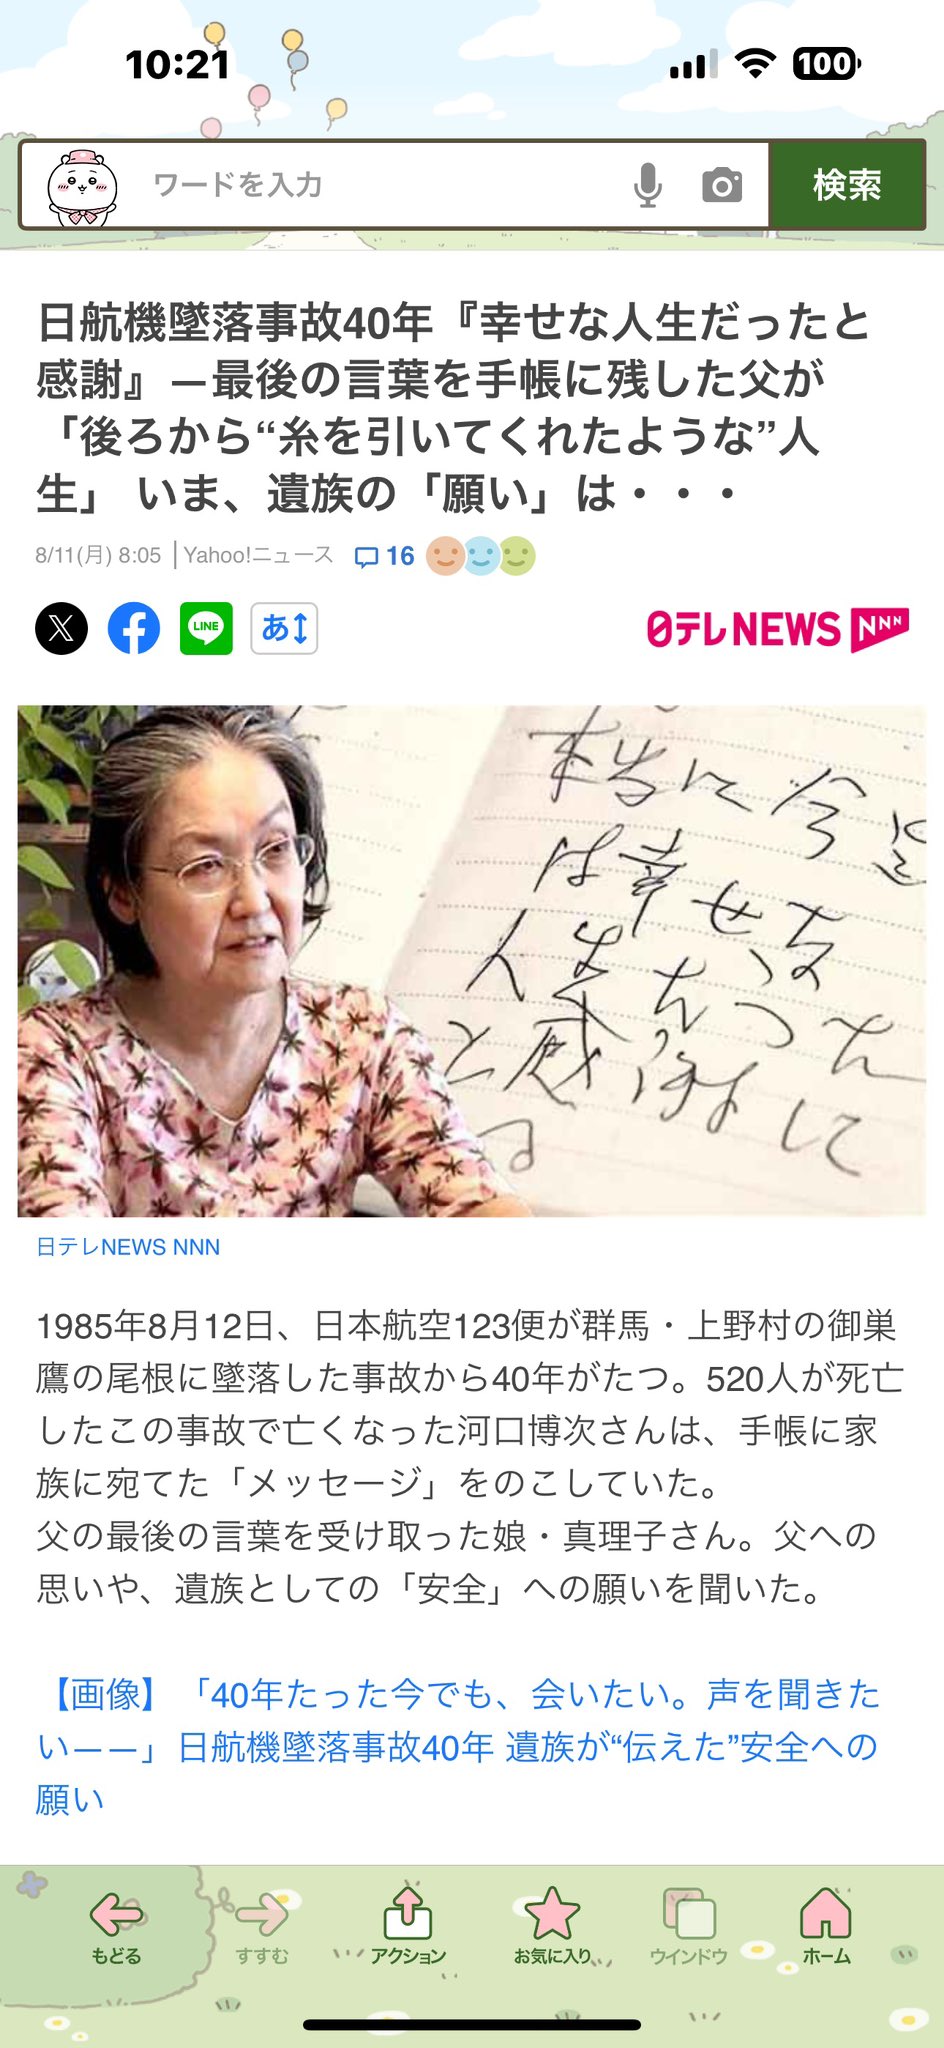 10:21
100
ワードを入力
検索
日航機墜落事故40年『幸せな人生だったと
感謝』—最後の言葉を手帳に残した父が
「後ろから“糸を引いてくれたような”人
生」 いま、遺族の「願い」は・・・
8/11(月) 8:05
Yahoo!ニュース
16
X
f
LINE
あ
日テレNEWS NNN
本当に今迄
は幸せな
人生だった
と感謝して
る
日テレNEWS NNN
1985年8月12日、日本航空123便が群馬・上野村の御巣
鷹の尾根に墜落した事故から40年がたつ。520人が死亡
したこの事故で亡くなった河口博次さんは、手帳に家
族に宛てた「メッセージ」をのこしていた。
父の最後の言葉を受け取った娘・真理子さん。父への
思いや、遺族としての「安全」への願いを聞いた。
【画像】「40年たった今でも、会いたい。声を聞きた
い——」日航機墜落事故40年 遺族が“伝えた”安全への
願い
もどる
すすむ
アクション
お気に入り
ウインドウ
ホーム